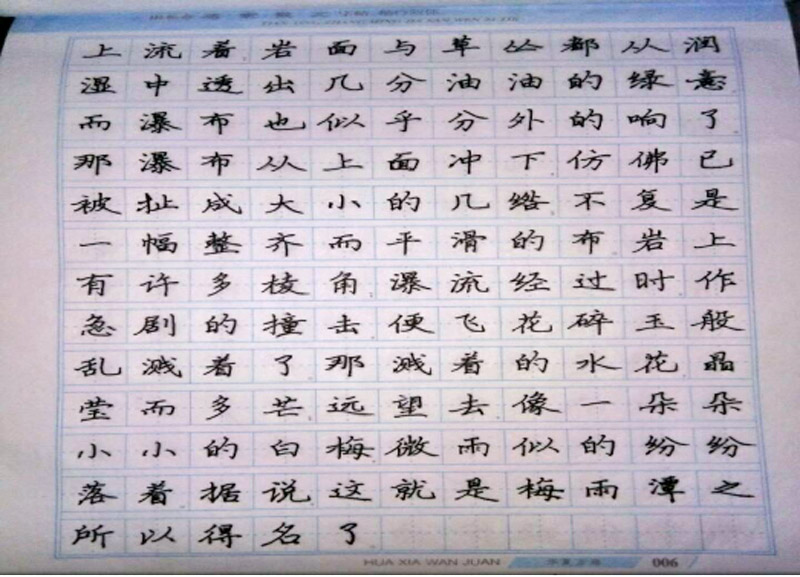 上流着岩面与草丛都从润
湿中透出几分油油的绿意
而瀑布也似乎分外的响了
那瀑布从上面冲下仿佛已
被扯成大小的几绺不复是
一幅整齐而平滑的布岩上
有许多棱角瀑流经过时作
急剧的撞击便飞花碎玉般
乱溅着了那溅着的水花晶
莹而多芒远望去像一朵朵
小小的白梅微雨似的纷纷
落着据说这就是梅雨潭之
所以得名了
HUA XIA WAN JUAN
006